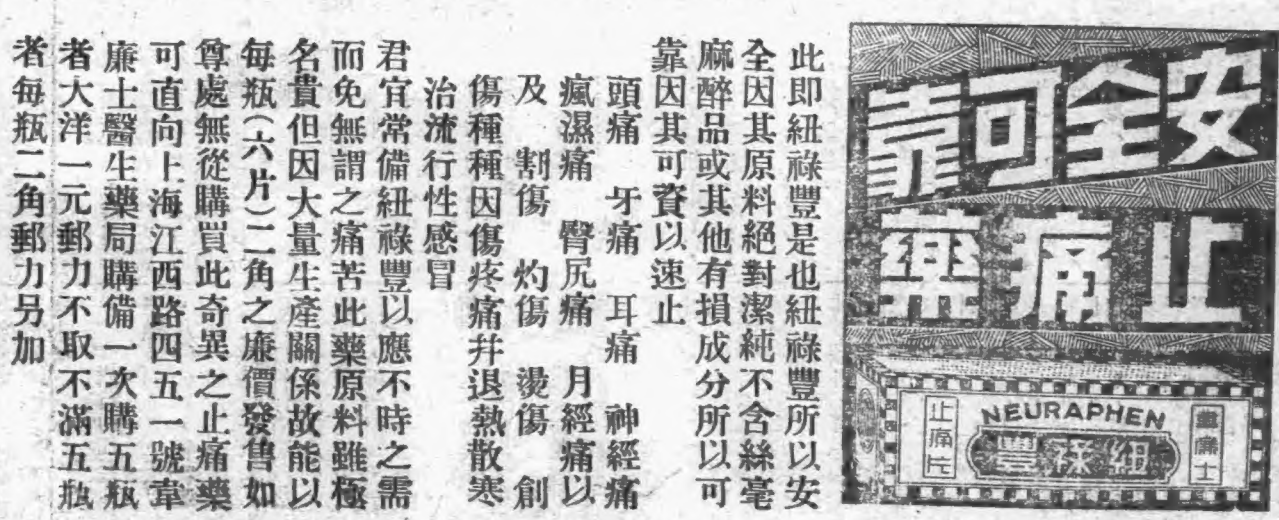 安全可靠
止痛藥
韋廉士
NEURAPHEN
紐祿豐
止痛片
此即紐祿豐是也紐祿豐所以安
全因其原料絕對潔純不含絲毫
麻醉品或其他有損成分所以可
靠因其可資以速止
頭痛 牙痛 耳痛 神經痛
瘋濕痛 臀尻痛 月經痛以
及 割傷 灼傷 燙傷 創
傷種種因傷疼痛幷退熱散寒
治流行性感冒
君宜常備紐祿豐以應不時之需
而免無謂之痛苦此藥原料雖極
名貴但因大量生產關係故能以
每瓶(六片)二角之廉價發售如
尊處無從購買此奇異之止痛藥
可直向上海江西路四五一號韋
廉士醫生藥局購備一次購五瓶
者大洋一元郵力不取不滿五瓶
者每瓶二角郵力另加